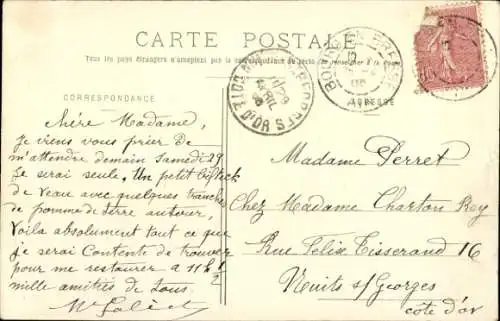 CARTE POSTALE
Tous les pays étrangers n'acceptent pas la correspondance au recto (se renseigner à la Poste)
CORRESPONDANCE
ADRESSE
BOURG EN BRESSE
CÔTE D'OR
Chère Madame,
Je viens vous prier de
m'attendre demain Samedi 29
Je serai seule, Un petit bifteck
de Veau avec quelques tranches
de pomme de terre autour,
Voila absolument tout ce que
je serai Contente de trouver
pour me restaurer à 11h ½
mille amitiés de tous
Madame Perret
Chez Madame Charton Rey
Rue Félix Tisserand 16
Nuits s/Georges
côte d'or